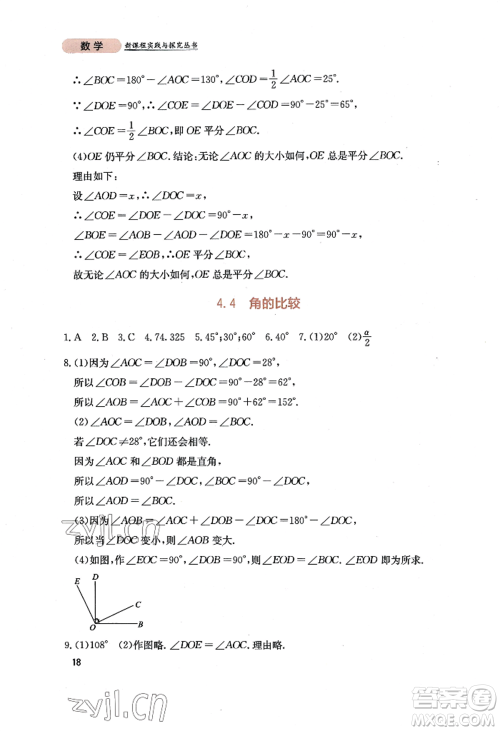 数学 新课程实践与探究丛书
∴∠BOC=180°-∠AOC=130°,∠COD=1/2∠AOC=25°.
∵∠DOE=90°,∴∠COE=∠DOE-∠COD=90°-25°=65°,
∴∠COE=1/2∠BOC,即 OE 平分∠BOC.
(4)OE 仍平分∠BOC. 结论:无论∠AOC 的大小如何,OE 总是平分∠BOC.
理由如下:
设∠AOD=x,∴∠DOC=∠AOD=x,
∴∠COE=∠DOE-∠DOC=90°-x,
∠BOE=∠AOB-∠AOD-∠DOE=180°-x-90°=90°-x,
∴∠COE=∠EOB,∴OE 平分∠BOC.
故无论∠AOC 的大小如何,OE 总是平分∠BOC.
4.4 角的比较
1. A 2. B 3. C 4. 74.325 5. 45°;30°;60° 6. 40° 7. (1)20° (2)α/2
8. (1)因为∠AOC=∠DOB=90°,∠DOC=28°,
所以∠COB=∠DOB-∠DOC=90°-28°=62°,
所以∠AOB=∠AOC+∠COB=90°+62°=152°.
(2)∠AOD=∠BOC.
若∠DOC≠28°,它们还会相等.
因为∠AOC 与∠BOD 都是直角,
所以∠AOD+∠DOC=∠DOC+∠BOC=90°,
所以∠AOD=∠BOC.
(3)因为∠AOB=∠AOC+∠DOB-∠DOC=180°-∠DOC,
所以当∠DOC 变小,则∠AOB 变大.
(4)如图,作∠EOC=90°,∠DOB=90°,则∠EOD=∠BOC.
E D C O B
9. (1)108° (2)作图略. ∠DOE=∠AOC. 理由略.
18
zyjl.cn
zyjl.cn